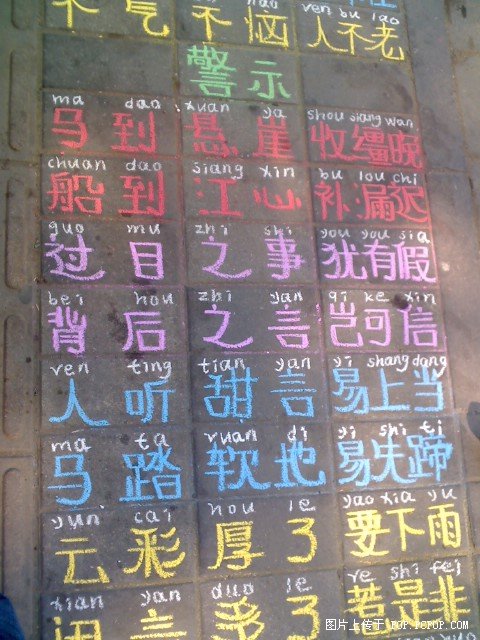 ven bu lao
不气不恼人不老
警示
ma dao xuan ya shou siang wan
马到悬崖收缰晚
chuan dao siang xin bu lou chi
船到江心补漏迟
guo mu zhi shi you you sia
过目之事犹有假
bei hou zhi yan qi ke xin
背后之言岂可信
ven ting tian yan yi shang dang
人听甜言易上当
ma ta vuan di yi shi ti
马踏软地易失蹄
yun cai hou le yao xia yu
云彩厚了要下雨
xian yan duo le ve shi fei
闲言多了惹是非
图片上传于 POP.PCPOP.COM